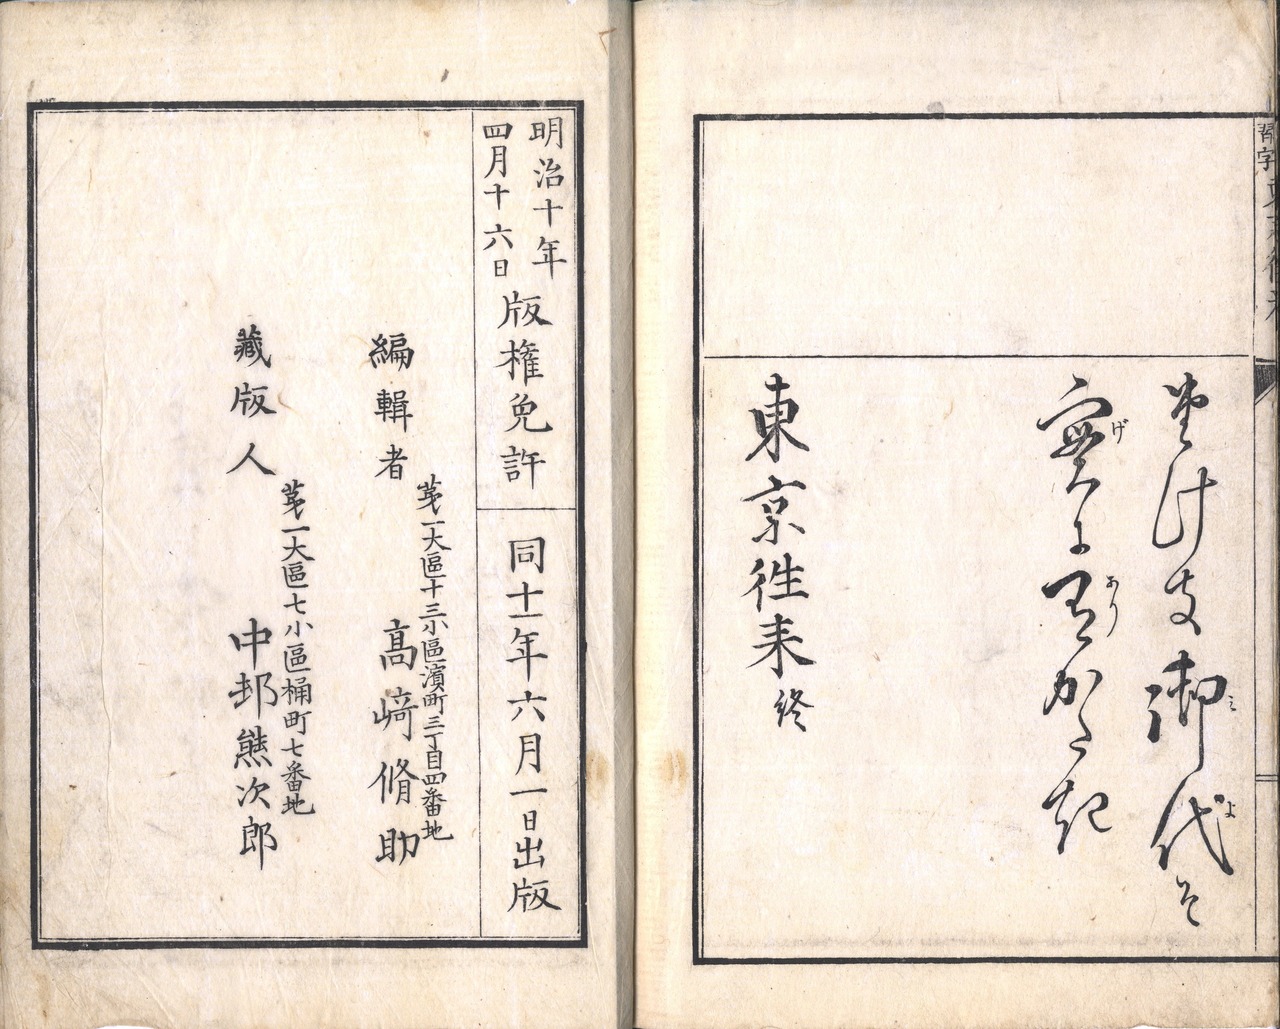 習字 東京徃来
け支御代そ
實に有かた起
げ
あり
み
よ
東京徃来 終
明治十年
四月十六日
版權免許
同十一年六月一日出版
編輯者
第一大區十三小區濱町三丁目四番地
高﨑脩助
藏版人
第一大區七小區桶町七番地
中邨熊次郎